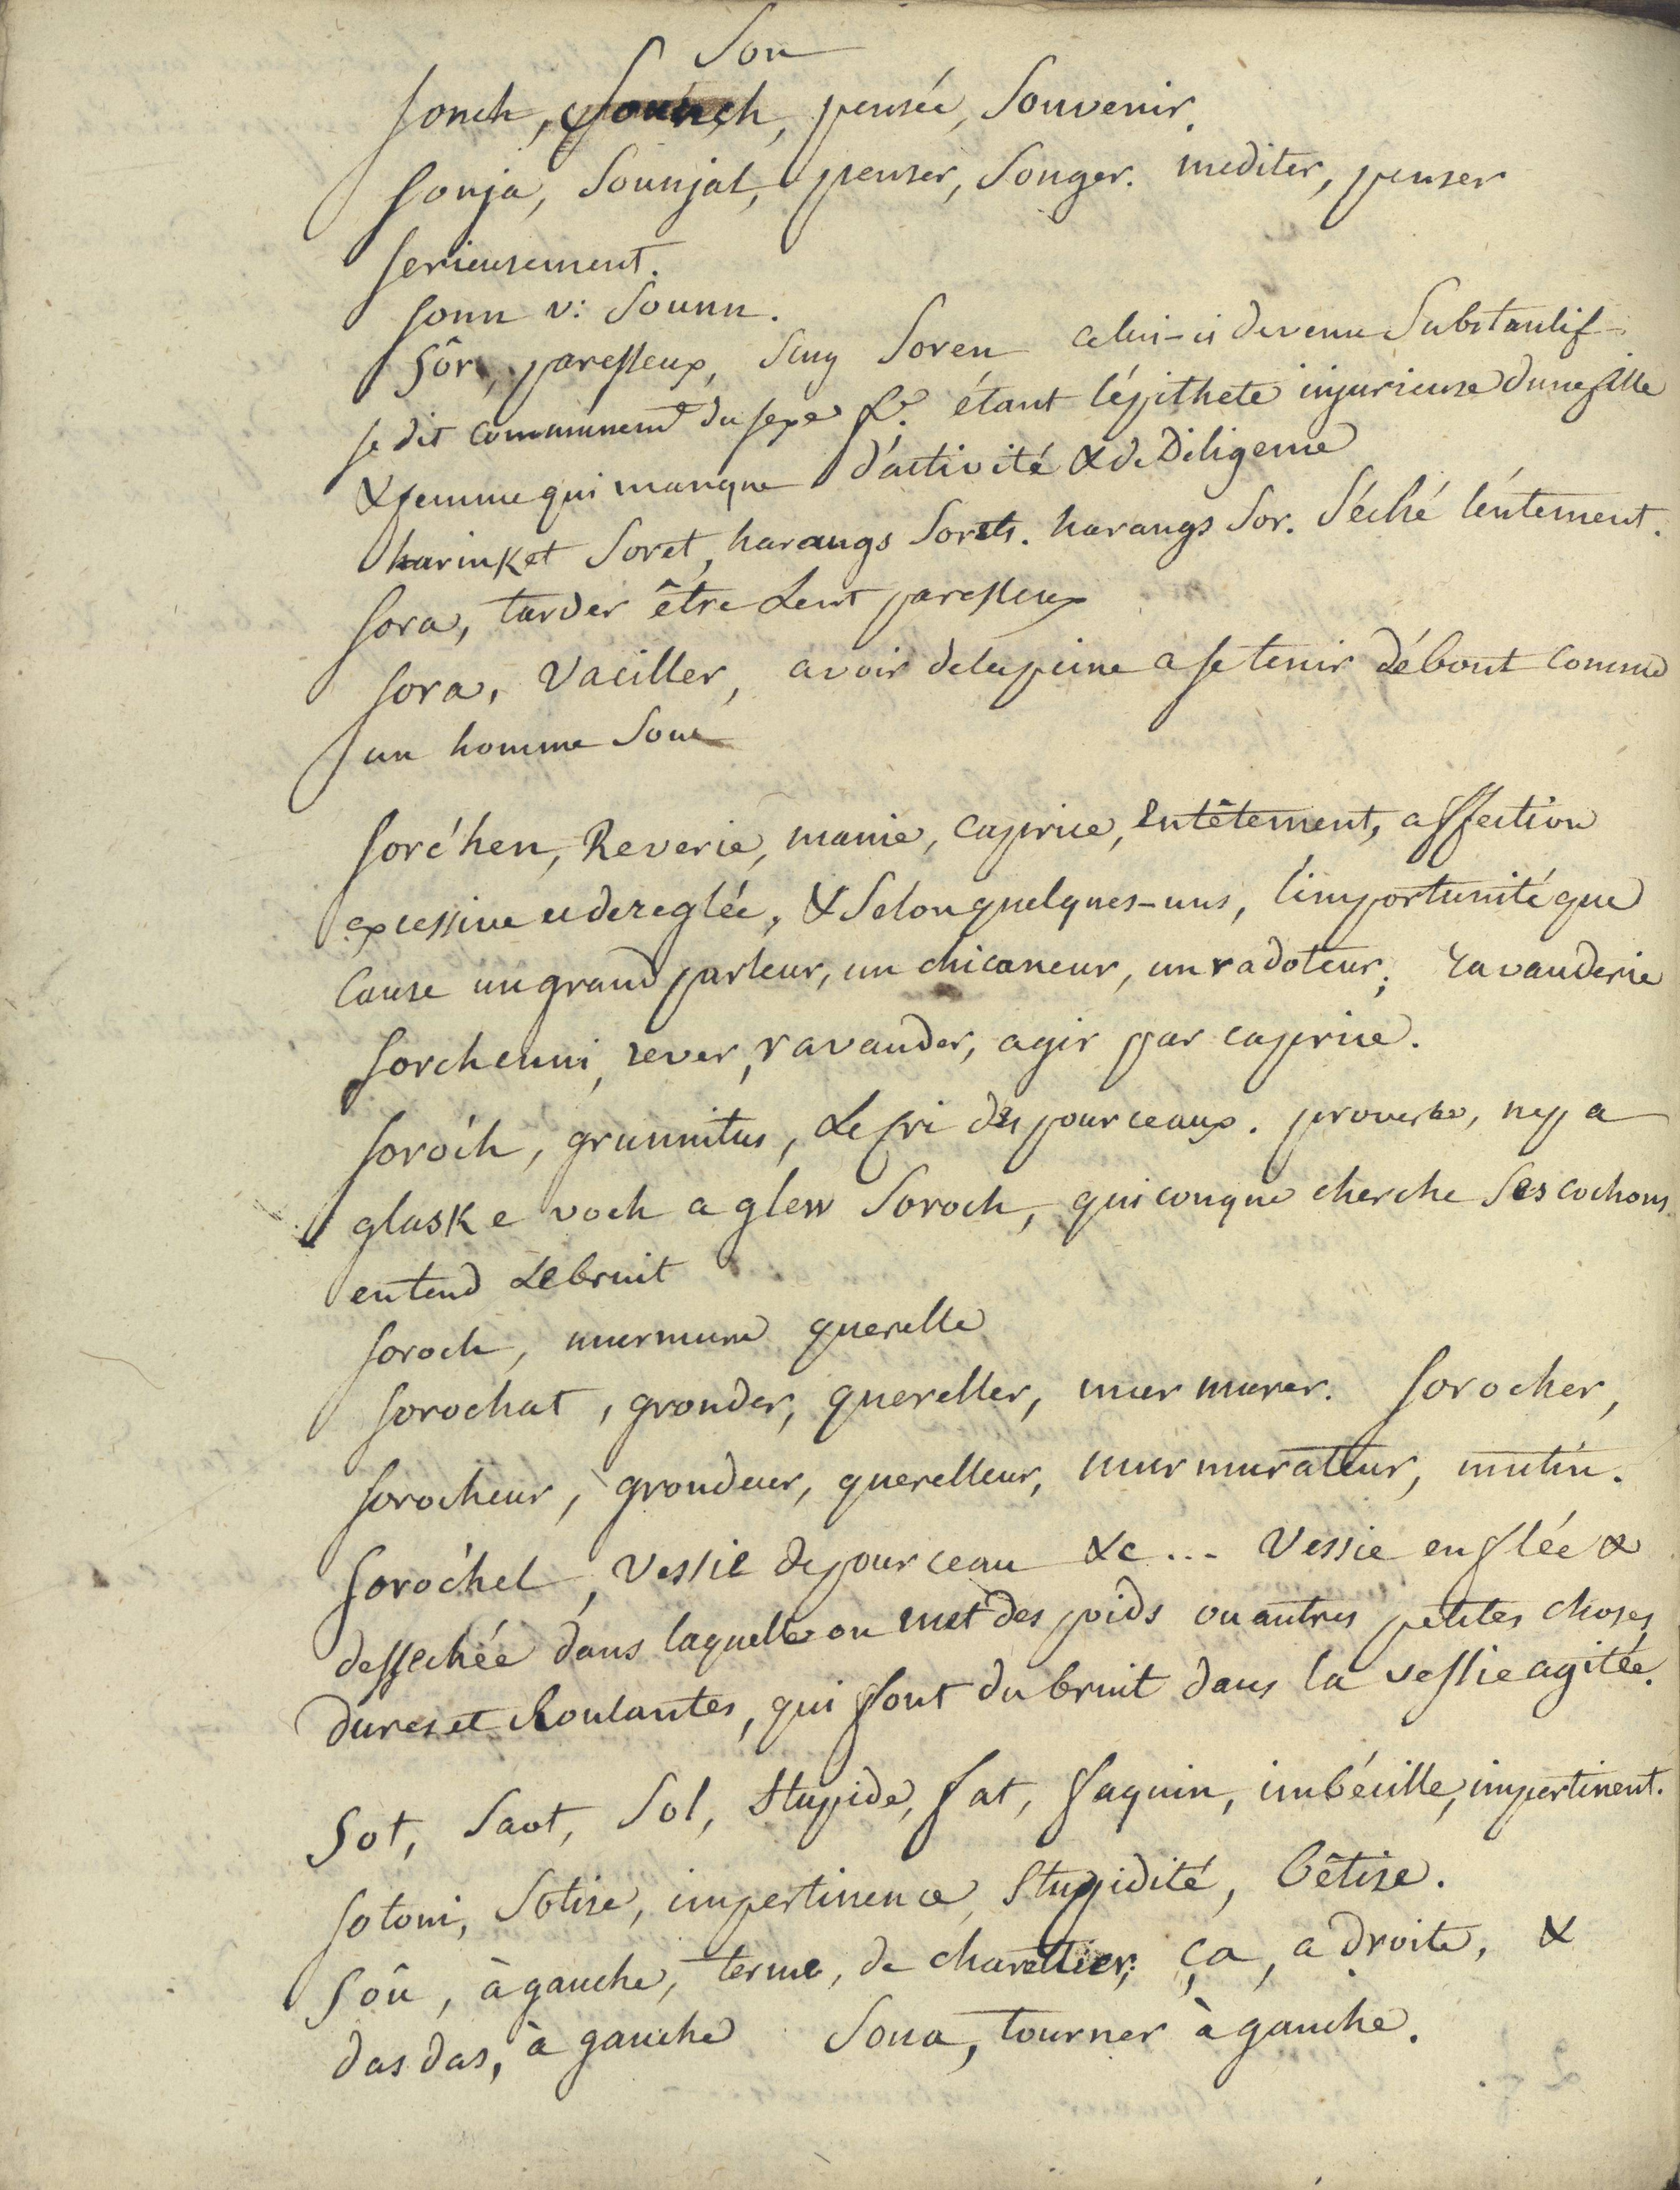 Son
Sonch, Sounch, pensée, Souvenir.
Sonja, Sounjal, penser, Songer. mediter, penser
serieusement.
Sonn v: Sounn.
Sôr, paresseux, Sing Soren celui-ci devenu Substantif
se dit communemt du sexe f. étant l'épithete injurieuse d'une fille
& femme qui manque d'activité & de Diligence
harinket Soret, harangs Sorets. harangs Sor. Séché lentement.
Sora, tarder être Lent paresseux
Sora, Vaciller, avoir de la peine a se tenir débout comme
un homme Soul
Soréhen, Reverie, manie, Caprice, Entêtement, affection
excessive e dereglée, & Selon quelques-uns, l'importunité que
Cause un grand parleur, un chicaneur, un radoteur; ravauderie
Sorchenni, rever, ravauder, agir par caprice.
Soroch, grunnitus, Le cri des pourceaux. proverbe, nep a
glask e voch a glew Soroch, quiconque cherche Ses cochons
entend Le bruit
Soroch, murmure querelle
Sorochat, gronder, quereller, murmurer. Sorocher,
Sorocheur, grondeur, querelleur, murmurateur, mutin.
Sorochel, Vessie de pourceau &c... Vessie enflée &
dessechée dans laquelle on met des poids ou autres petites choses
dures et Roulantes, qui font du bruit dans la vessie agitée.
Sot, Saot, Sol, Stupide, fat, faquin, imbécille, impertinent.
Sotoni, Sotise, impertinence Stupidité, bêtise.
Soû, à gauche, terme, de charettier; ça, a droite, &
das das, à gauche Soua, tourner à gauche.